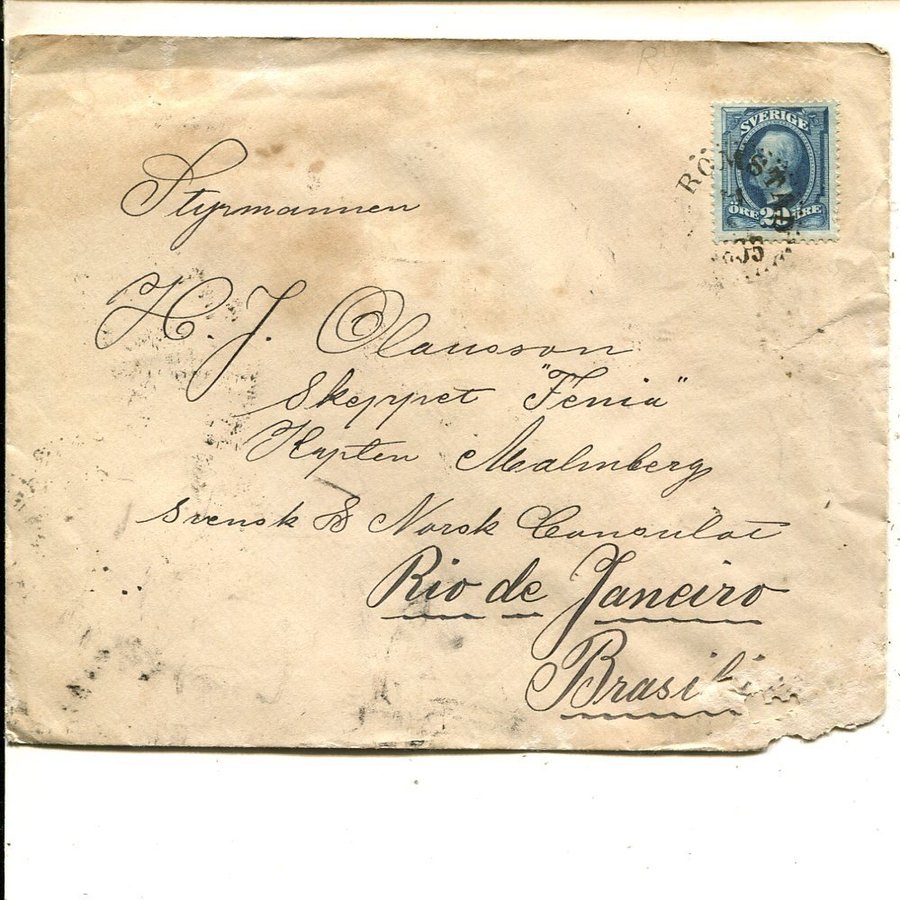 SVERIGE
ÖRE 20 ÖRE
Styrmannen
H. J. Olausson
Skeppet "Fenia"
Kapten Malmberg
Svensk & Norsk Consulat
Rio de Janeiro